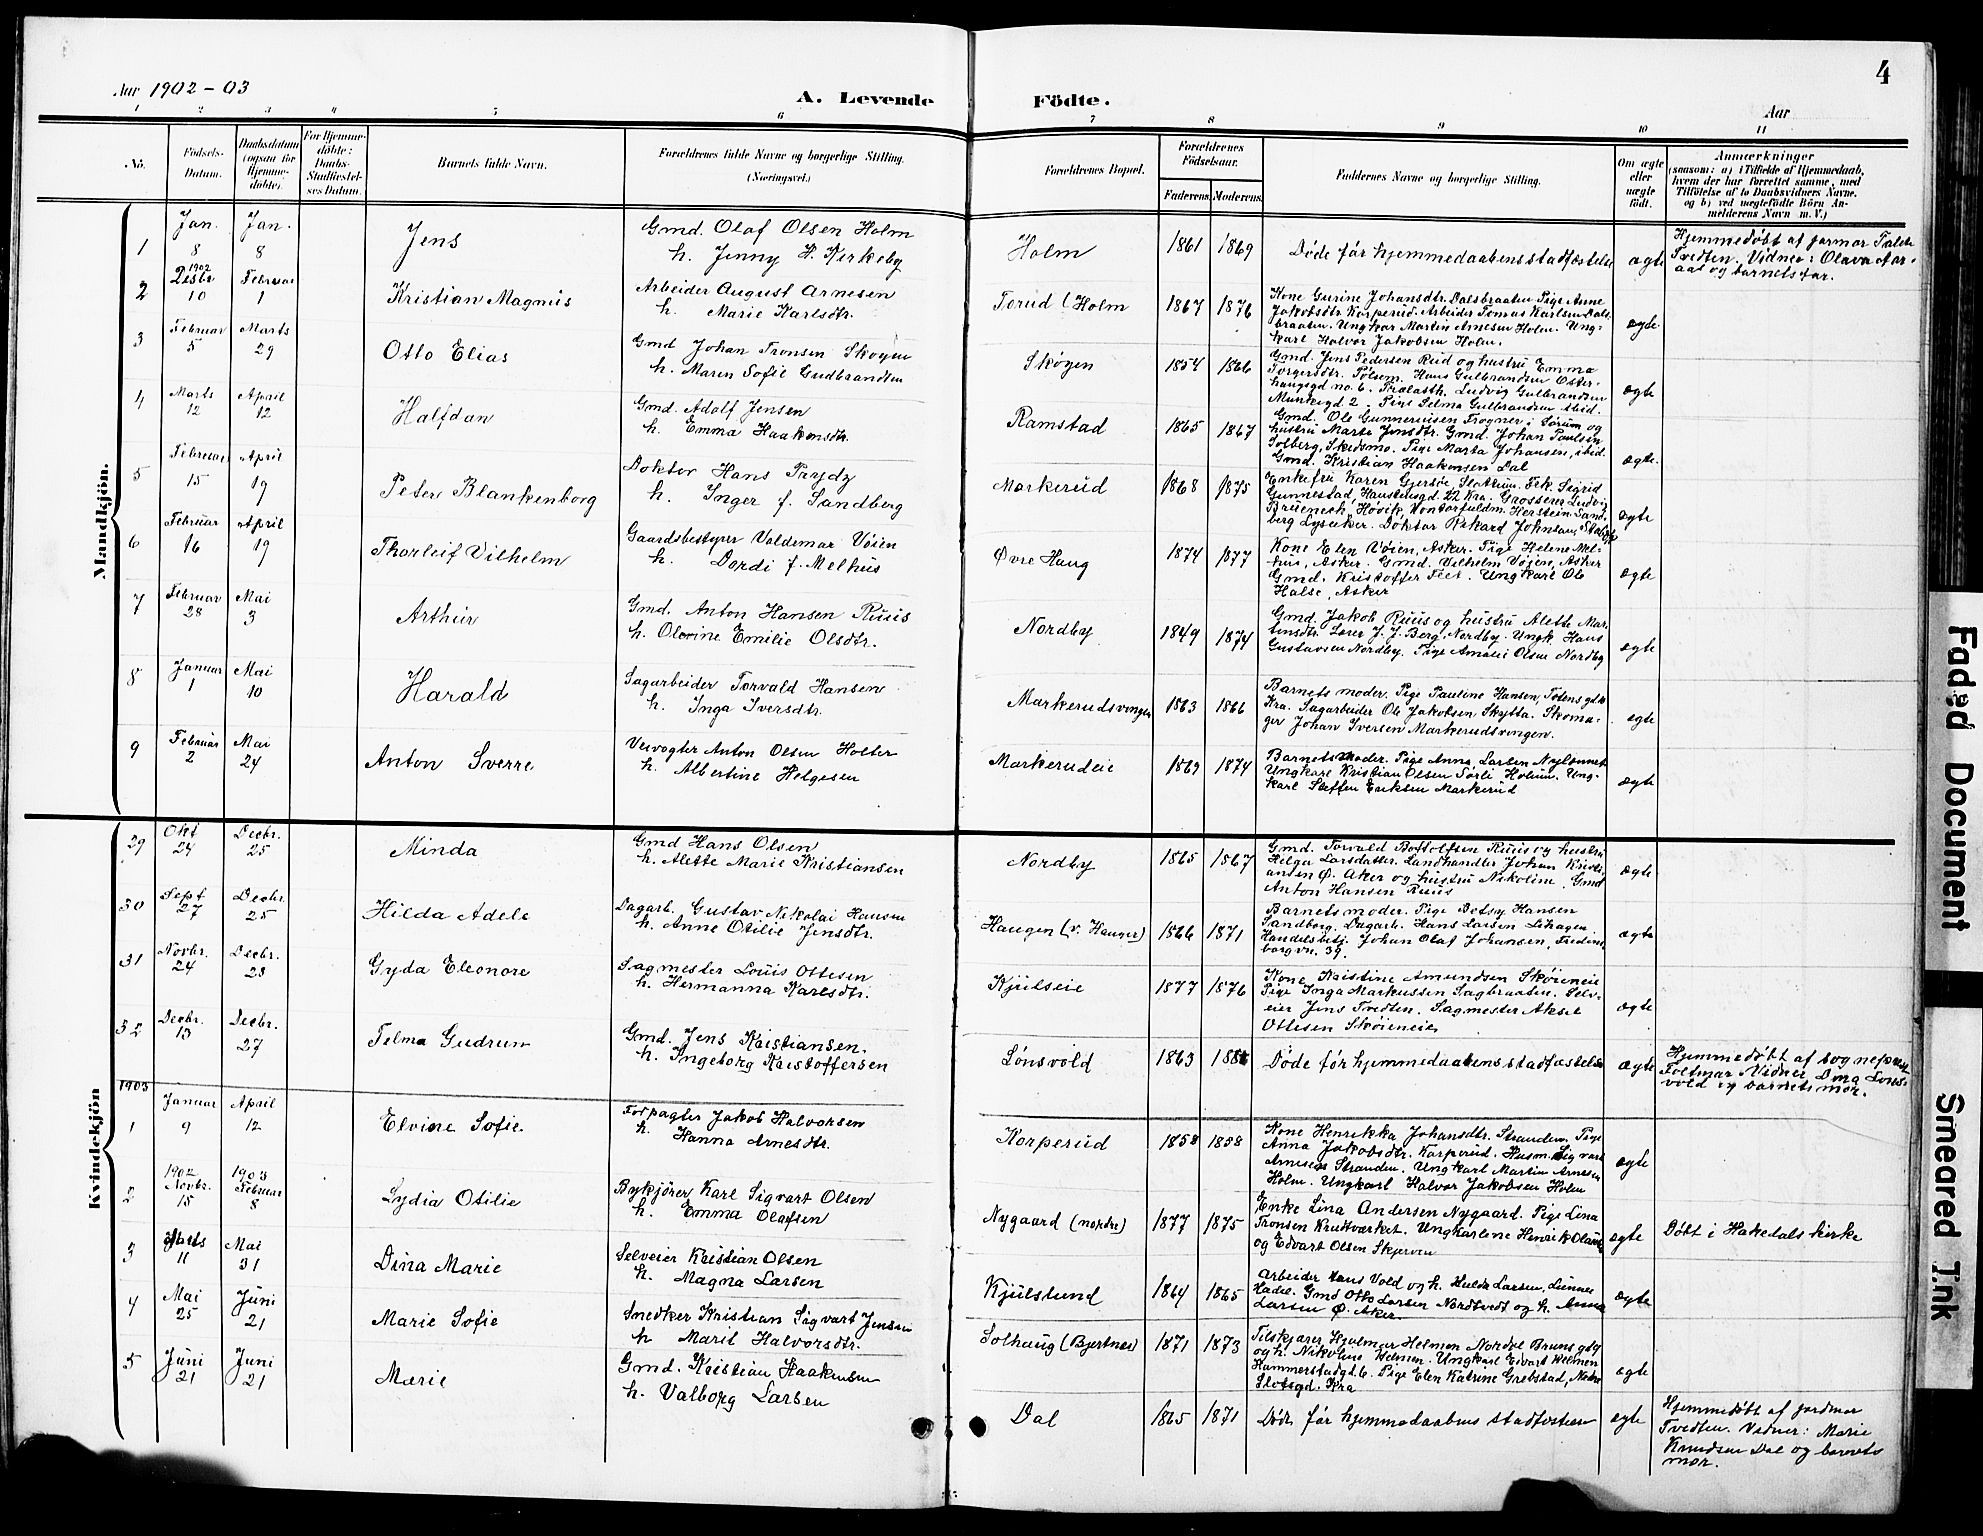 Aar 1902-03
A. Levende Födte.
Aar
4
1 2 3 4 5 6 7 8 9 10 11
No.
Födsels-Datum.
Daabsdatum (ogsaa for Hjemmedöbte).
For Hjemmedöbte: Daabs-Stadfæstelses Datum.
Barnets fulde Navn.
Forældrenes fulde Navne og borgerlige Stilling.
(Næringsvei.)
Forældrenes Bopæl.
Forældrenes Födselsaar.
Faderens. Moderens.
Faddernes Navne og borgerlige Stilling.
Om ægte eller uægte födt.
Anmærkninger
(saasom: a) i Tilfælde af Hjemmedaab,
hvem der har forrettet samme, med
Tilföielse af to Daabsvidners Navne.
og b) ved uegtefödte Börn An-
melderens Navn m. V.)
Mandkjön.
1 Jan. 8 Jan. 8 Jens
Gmd. Olaf Olsen Holm
h. Jenny H. Kirkeby
Holm 1861 1869 Døde før hjemmedaabens stadfæstelse ægte
Hjemmedøbt af jormor
Tvedten. Vidner: Olava
og barnets far.
2 1902 Desbr 10 Februar 1 Kristian Magnus
Arbeider August Arnesen
h. Marie Karlsdtr.
Torud (Holm 1867 1876
Kone Gurine Johansdtr. Dalsbraaten Pige Anne
Jakobsdtr Korperud. Arbeider Tomas Karlsen Dals-
braaten. Ungkar Martin Arnesen Holm. Ung-
karl Halvor Jakobsen Holm.
ægte
3 Februar 5 Marts 29 Otto Elias
Gmd Johan Tronsen Skogen
h. Maren Sofie Gudbrandsen
Skøgen 1854 1866
Gmd. Jens Pedersen Rud og hustru Emma
Torgersdtr. Pølsem. Hans Gulbrandsen Oster-
haugsgd no. 6. Ludvig Gulbrandsen
Munkegd 2. Pige Selma Gulbrandsen ibid.
ægte
4 Marts 12 April 12 Halfdan
Gmd. Adolf Jensen
h. Emma Haakensdtr.
Ramstad 1865 1867
Gmd. Ole Gunnersen Frogner i Sørum og
hustru Marte Jensdtr. Gmd. Johan Paulsen
Solberg, Skedsmo. Pige Marta Johansen, ibid.
Gmd. Kristian Haakensen Dal
ægte.
5 Februar 15 April 19 Peter Blankenborg
Doktor Hans Prydz
h. Inger f. Sandberg
Markerud 1868 1875
Enkefru Karen Frk. Sigrid
Gunnestad, 22 Kra. Grosserer Ludvig
Høvik Kontorfuldm. Herstein Sand-
berg Lysaker. Doktor Rikard Johnsen,
ægte
6 Februar 16 April 19 Thorleif Vilhelm
Gaardsbestyrer Valdemar Vøien
h. Dordi f. Melhus
Øvre Haug 1874 1877
Kone Elen Vøien, Asker. Pige Helene Mel-
hus, Asker. Gmd. Vilhelm Vøien, Asker
Gmd. Kristoffer Feet. Ungkarl Ole
Halse, Asker
ægte
7 Februar 28 Mai 3 Arthur
Gmd. Anton Hansen Ruus
h. Olevine Emilie Olsdtr.
Nordby 1849 1874
Gmd. Jakob Ruus og hustru Alette Mar-
tinsdtr. Lærer J. J. Berg, Nordby. Ungk Hans
Gustavsen Nordby. Pige Amalie Olsen Nordby
ægte
8 Januar 1 Mai 10 Harald
Sagarbeider Torvald Hansen
h. Inga Iversdtr.
Markerudsvingen 1863 1866
Barnets moder. Pige Pauline Hansen, Totens gd.
Kra. Sagarbeider Ole Jakobsen Skytta. Skoma-
ger Johan Iversen Markerudsvingen.
egte
9 Februar 2 Mai 24 Anton Sverre
Veivogter Anton Olsen Holter
h. Albertine Helgesen
Markerudeie 1869 1874
Barnets Moder. Pige Anna Larsen
Ungkarl Kristian Olsen Sørli Holum. Ung-
karl Steffen Eriksen Markerud
ægte
Kvindekjön
29 Okt 24 Decbr. 25 Minda
Gmd Hans Olsen
h. Alette Marie Kristiansen
Nordby 1865 1867
Gmd. Torvald Botolfsen Ruus og hustru
Helga Larsdatter. Landhandler Johan Kristi-
ansen Ø. Aker og hustru Nikoline. Gmd
Anton Hansen Ruus
ægte
30 Sept 27 Decbr. 25 Hilda Adele
Dagarb. Gustav Nikolai Hansen
h. Anne Otilie Jensdtr.
Haugen (v. Hauger) 1866 1871
Barnets moder. Pige Betsy Hansen
Sandberg. Dagarb. Hans Larsen Lihagen
Handelsbetj. Johan Olaf Johansen, Fredens-
borgvn. 39.
ægte
31 Novbr. 24 Decbr. 23 Gyda Eleonore
Sagmester Louis Ottesen
h. Hermanna Karlsdtr.
Kjulseie 1877 1876
Kone Kristine Amundsen Skøieneie
Pige Inga Markussen Sagbraaten. Selv-
eier Jens Tvedten. Sagmester Aksel
Ottesen Skøieneie
ægte
32 Decbr. 13 Decbr. 27 Telma Gudrun
Gmd. Jens Kristiansen.
h. Ingeborg Kristoffersen
Lønsvold 1863 Døde før hjemmedaabens stadfæstelse ægte
Hjemmedøbt af sogneprest
Foltmar Vidner Dina Løns-
vold og barnets mor.
1903
1 Januar 9 April 12 Elvine Sofie
Forpagter Jakob Halvorsen
h. Hanna Arnesdtr.
Korperud 1858 1858
Kone Henrikka Johansdtr. Stranden. Pige
Anna Jakobsdtr. Korperud. Husm. Sigvart
Arnesen Stranden. Ungkarl Martin Arnesen
Holm. Ungkarl Halvor Jakobsen Holm
ægte
2 1902 Novbr. 15 1903 Februar 8 Lydia Otilie
Bykjører Karl Sigvart Olsen
h. Emma Olafsen
Nygaard (nordre) 1877 1875
Enke Lina Andersen Nygaard. Pige Lina
Tronsen Krudtværket. Ungkarlene Henrik
og Edvart Olsen Skjerven
ægte Døbt i Hakedals kirke
3 Marts 11 Mai 31 Dina Marie
Selveier Kristian Olsen
h. Magna Larsen
Kjulslund 1864 1865
Arbeider Hans Vold og h. Hulda Larsen, Lunner
Hadel. Gmd Otto Larsen Nordtvedt og h. Anna
Larsen Ø. Aker
ægte
4 Mai 25 Juni 21 Marie Sofie
Snedker Kristian Sigvart Jensen
h Marit Halvorsdtr.
Solhaug (Bjertnes) 1871 1873
Hjalmar Helmen Nordre Brunsgd 4
og h. Nikoline Helmen. Ungkarl Edvart Helmen
Hammerstadgt. 6. Pige Elen Katrine Grebstad, Nedre
Slotsgd. Kra
ægte
5 Juni 21 Juni 21 Marie
Gmd. Kristian Haakensen
h. Valborg Larsen
Dal 1865 1871 Døde før hjemmedaabens stadfæstelse egte
Hjemmedøbt af jordmor
Tvedten. Vidner: Marie
Knudsen Dal og barnets
mor.
Faded Document
Smeared Ink